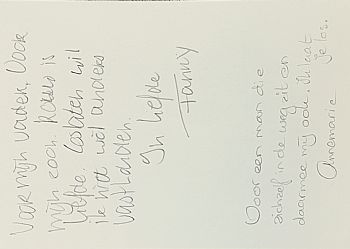 Voor mijn vader. Voor
mijn zoon. Rouw is
liefde. Loslaten wil
ik niet wil anders
vasthouden.
In liefde
Fanny
Voor een man die
zichzelf in de weg zit en
daarmee mij ook. Ik laat
je los.
Annemarie